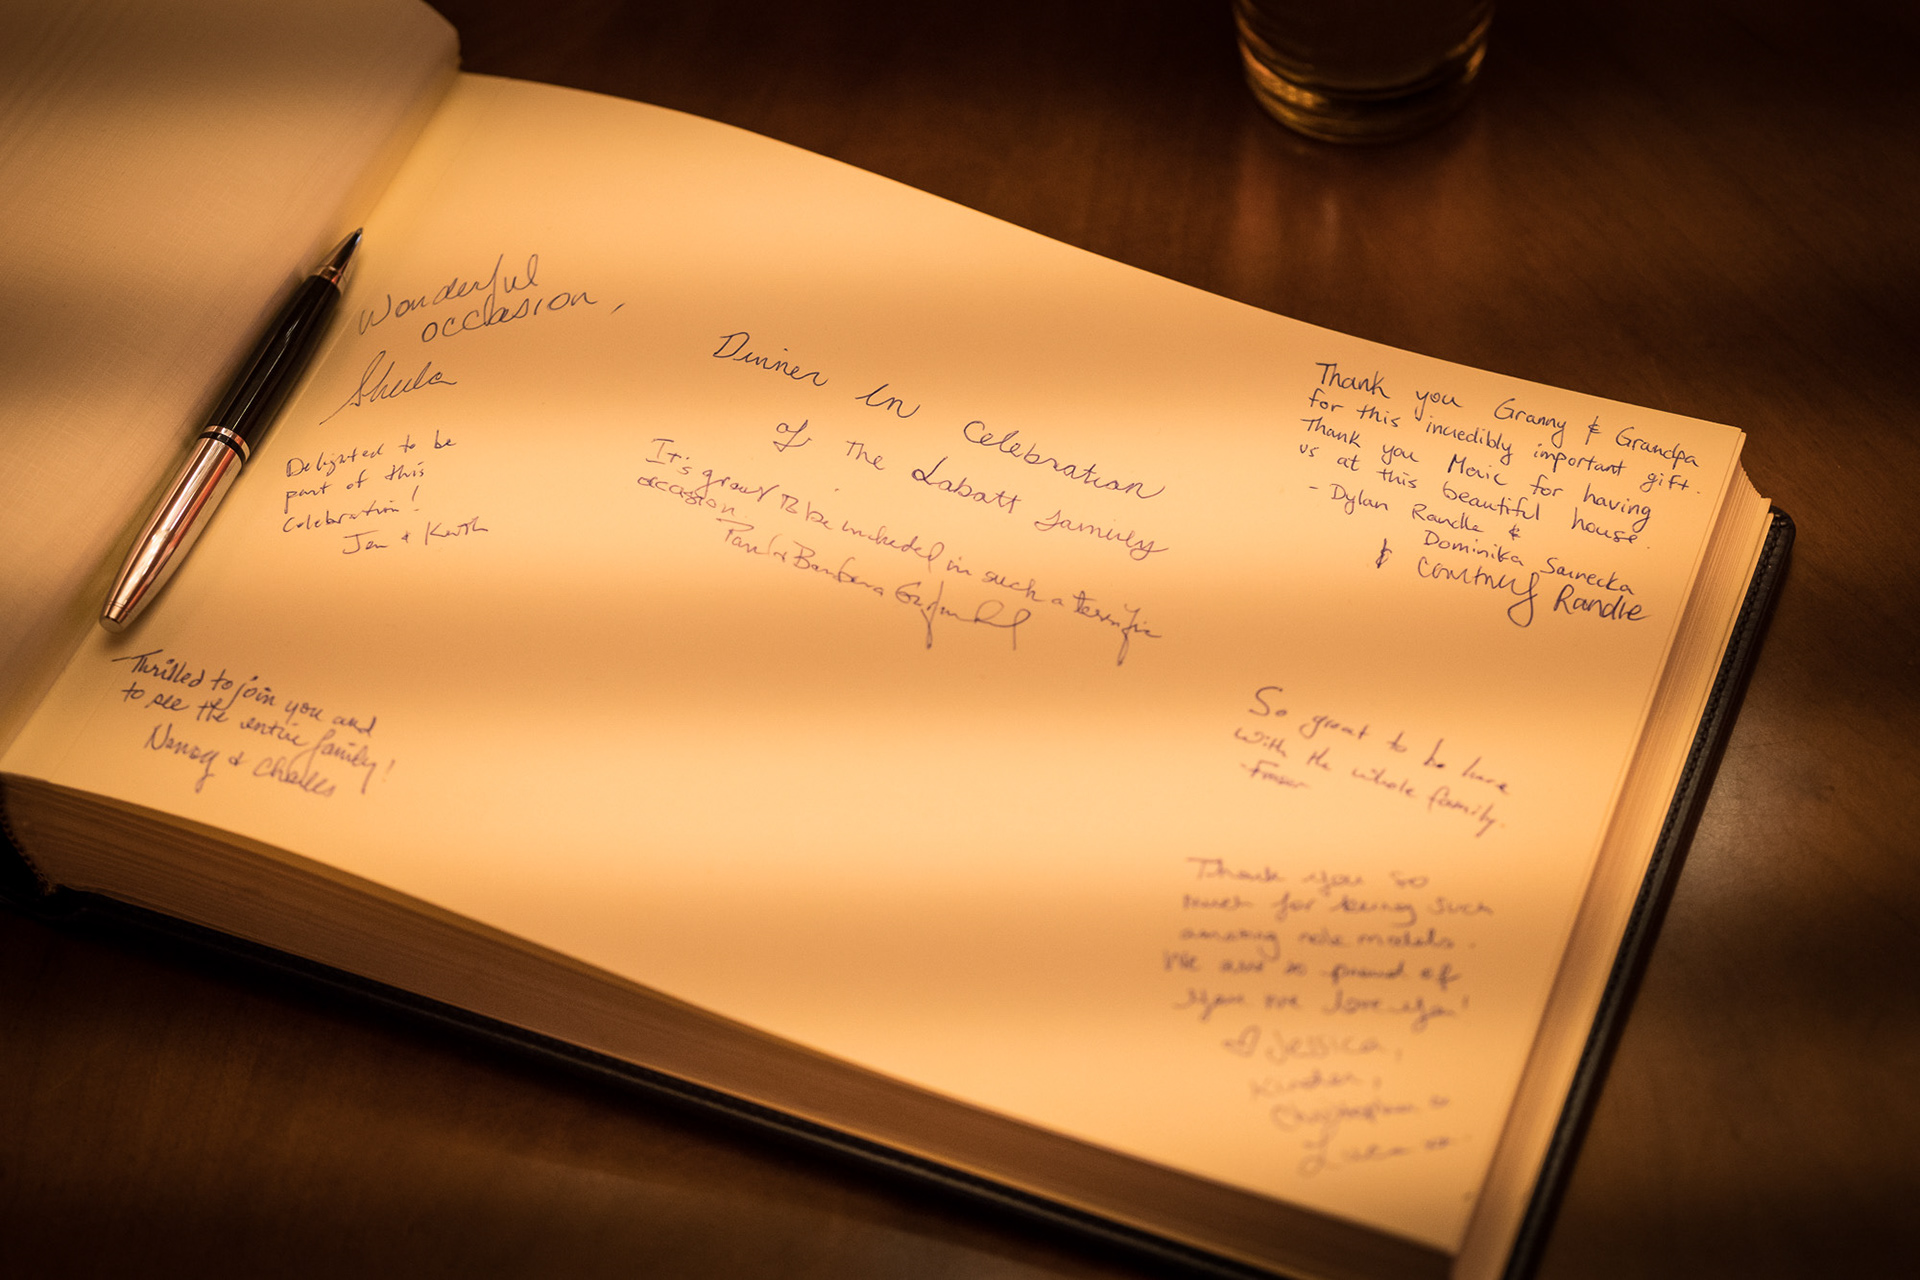 Wonderful
occasion,
Sheila
Delighted to be
part of this
Celebration!
Jen & Keith
Thrilled to join you and
to see the entire family!
Nancy & Charles
Dinner in Celebration
of The Labatt Family
It's great to be included in such a terrific
occasion.
Barbara
Thank you Granny & Grandpa
for this incredibly important gift.
Thank you Meric for having
us at this beautiful house.
- Dylan Randle &
Dominika
& Courtney Randle
So great to be here
with the whole family.
-Fraser
Thank you so
much for being such
amazing role models.
We are so proud of
you we love you!
Jessica,